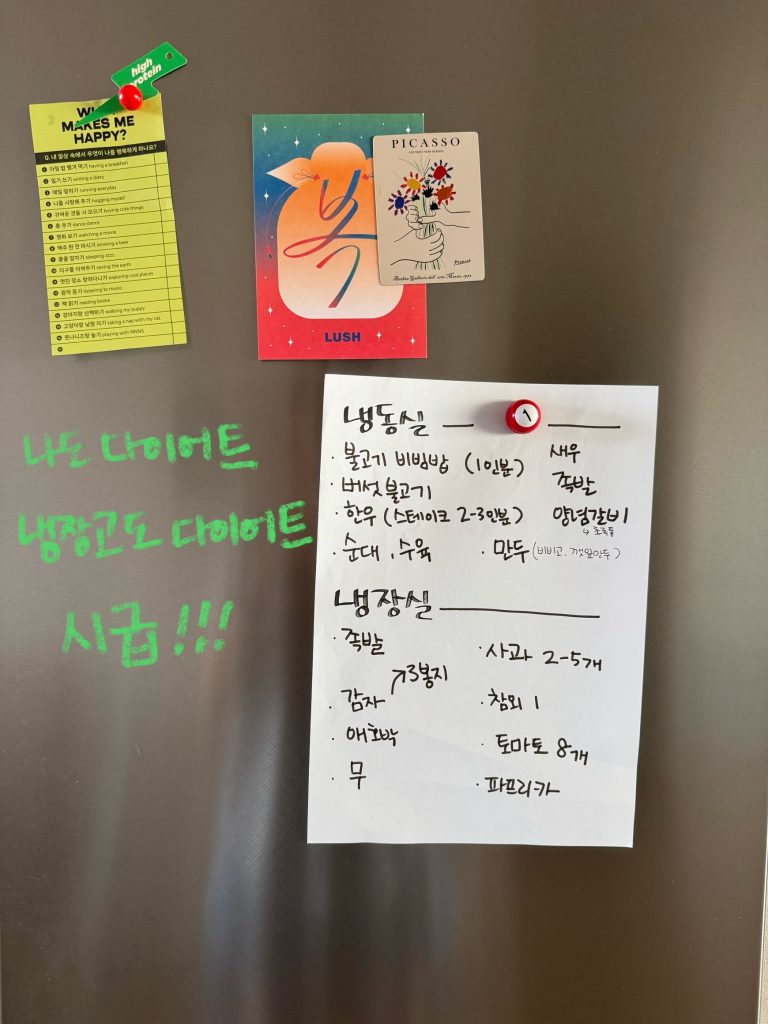 high
protein
MAKES ME
HAPPY?
Q. 내 일상 속에서 무엇이 나를 행복하게 하나요?
1 아침 밥 챙겨 먹기 having a breakfast
2 일기 쓰기 writing a diary
3 매일 달리기 running everyday
4 나를 사랑해 주기 hugging myself
5 귀여운 것들 사 모으기 buying cute things
6 춤 추기 dance dance
7 영화 보기 watching a movie
8 맥주 한 잔 마시기 drinking a beer
9 꿀꿀 잠자기 sleeping zzzz
10 지구를 아껴주기 saving the earth
11 멋진 장소 찾아다니기 exploring cool places
12 음악 듣기 listening to music
13 책 읽기 reading books
14 강아지랑 산책하기 walking my puppy
15 고양이랑 낮잠 자기 taking a nap with my cat
playing with NNNS
17
복
LUSH
PICASSO
Picasso
나도 다이어트
냉장고도 다이어트
시급!!!
냉동실
1
· 불고기 비빔밥 (1인분) 새우
· 버섯불고기 족발
· 한우 (스테이크 2-3인분) 양념갈비
↳ 초록통
· 순대, 수육 · 만두 (비비고, 깻잎만두)
냉장실
· 족발 · 사과 2-5개
· 감자 ↗3봉지 · 참외 1
· 애호박 · 토마토 8개
· 무 · 파프리카